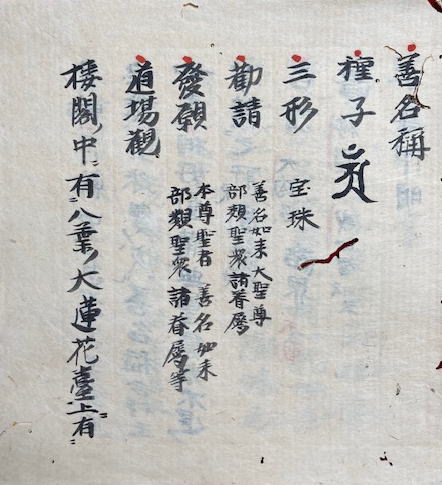 善名稱
種子
三形 宝珠
勸請
善名如来大聖尊
部類聖衆諸眷属
發願
本尊聖者 善名如来
部類聖衆 諸眷属等
道場觀
楼閣ノ中ニ有八葉ノ大蓮花臺上ニ有